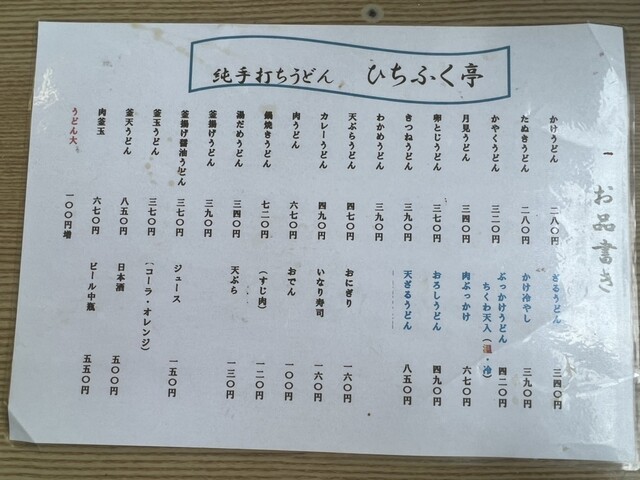 純手打ちうどん ひちふく亭
一 お品書き
かけうどん 二八〇円
たぬきうどん 二八〇円
かやくうどん 三二〇円
月見うどん 三四〇円
卵とじうどん 三七〇円
きつねうどん 三九〇円
わかめうどん 三九〇円
天ぷらうどん 四七〇円
カレーうどん 四九〇円
肉うどん 六七〇円
鍋焼きうどん 七二〇円
湯だめうどん 三四〇円
釜揚げうどん 三九〇円
釜揚げ醤油うどん 三七〇円
釜玉うどん 三七〇円
釜天うどん 八五〇円
肉釜玉 六七〇円
うどん大 一〇〇円増
ざるうどん 三四〇円
かけ冷やし 三九〇円
ぶっかけうどん 四二〇円
ちくわ天入(温・冷)
肉ぶっかけ 六七〇円
おろしうどん 四九〇円
天ざるうどん 八五〇円
おにぎり 一六〇円
いなり寿司 一六〇円
おでん 一〇〇円
(すじ肉) 一二〇円
天ぷら 一三〇円
ジュース 一五〇円
(コーラ・オレンジ)
日本酒 五〇〇円
ビール中瓶 五五〇円